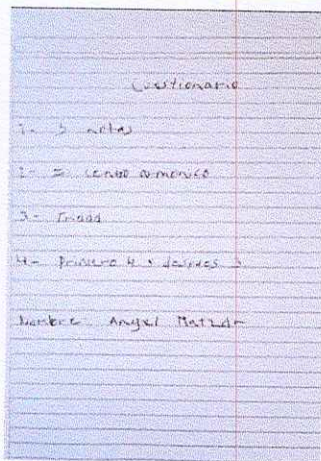 Cuestionario
1- 3 notas
2- centro armonico
3- Triada
4- Primero 4 y despues 3
Nombre: Angel